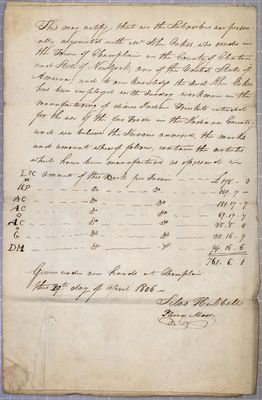 This may certify, that we the Subscribers are person
ally acquainted with Mr John Oakes who resides in
the Town of Champlain in the County of Clinton
and State of Newyork, one of the United States of
America, and to our knowledge the said John Oakes
has been employed with Sundry workmen in the
manufacturing of divers Indian Trinkets intended
for the use of the fur Trade in the Indian Country
and we believe the Invoice annexed the marks
and amount whereof follow, contain the articles
which have been manufactured as aforesaid
Amount of the Work per Invoice
Do
Do
Do
Do
Do
Do
DM Do 94.16.6
761.6.1
Given under our hands at Champlain
this 29th day of April 1806
Silas Hubbell
Pliny Moore